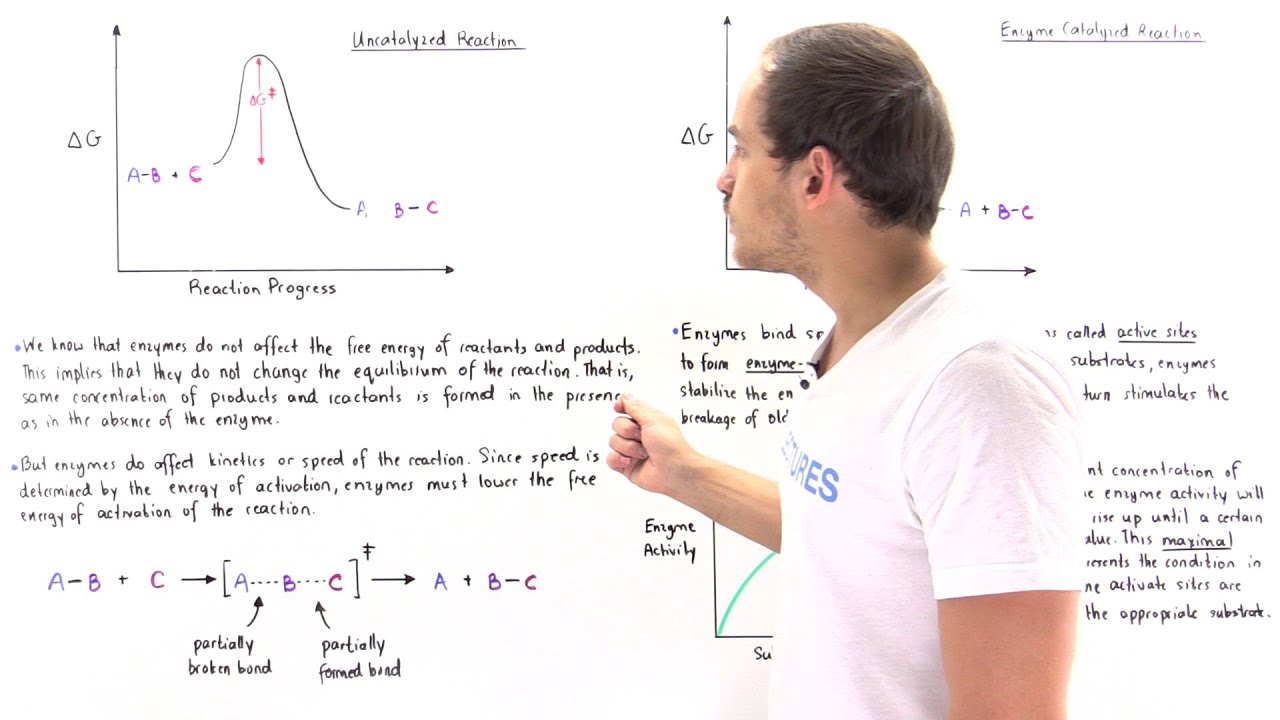 Uncatalyzed Reaction
ΔG
ΔG‡
A-B + C
A B-C
Reaction Progress
• We know that enzymes do not affect the free energy of reactants and products.
This implies that they do not change the equilibrium of the reaction. That is,
same concentration of products and reactants is formed in the presence
as in the absence of the enzyme.
• But enzymes do affect kinetics or speed of the reaction. Since speed is
determined by the energy of activation, enzymes must lower the free
energy of activation of the reaction.
A-B + C → [A····B····C]‡ → A + B-C
partially
broken bond
partially
formed bond
Enzyme Catalyzed Reaction
ΔG
A + B-C
• Enzymes bind called active sites
to form enzyme- substrates, enzymes
stabilize the turn stimulates the
breakage of old
concentration of
enzyme activity will
rise up until a certain
This maximal
the condition in
activate sites are
the appropriate substrate.
Enzyme
Activity